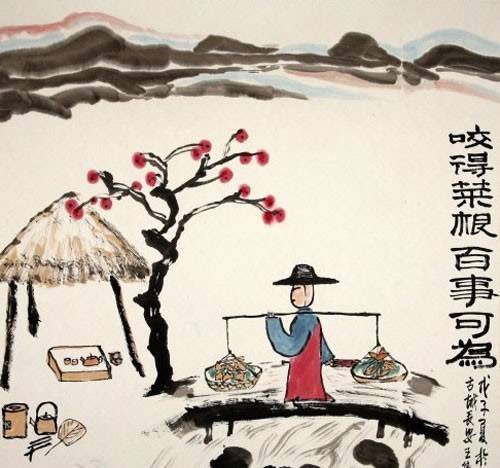 咬得菜根百事可為
戊子夏於
長安王